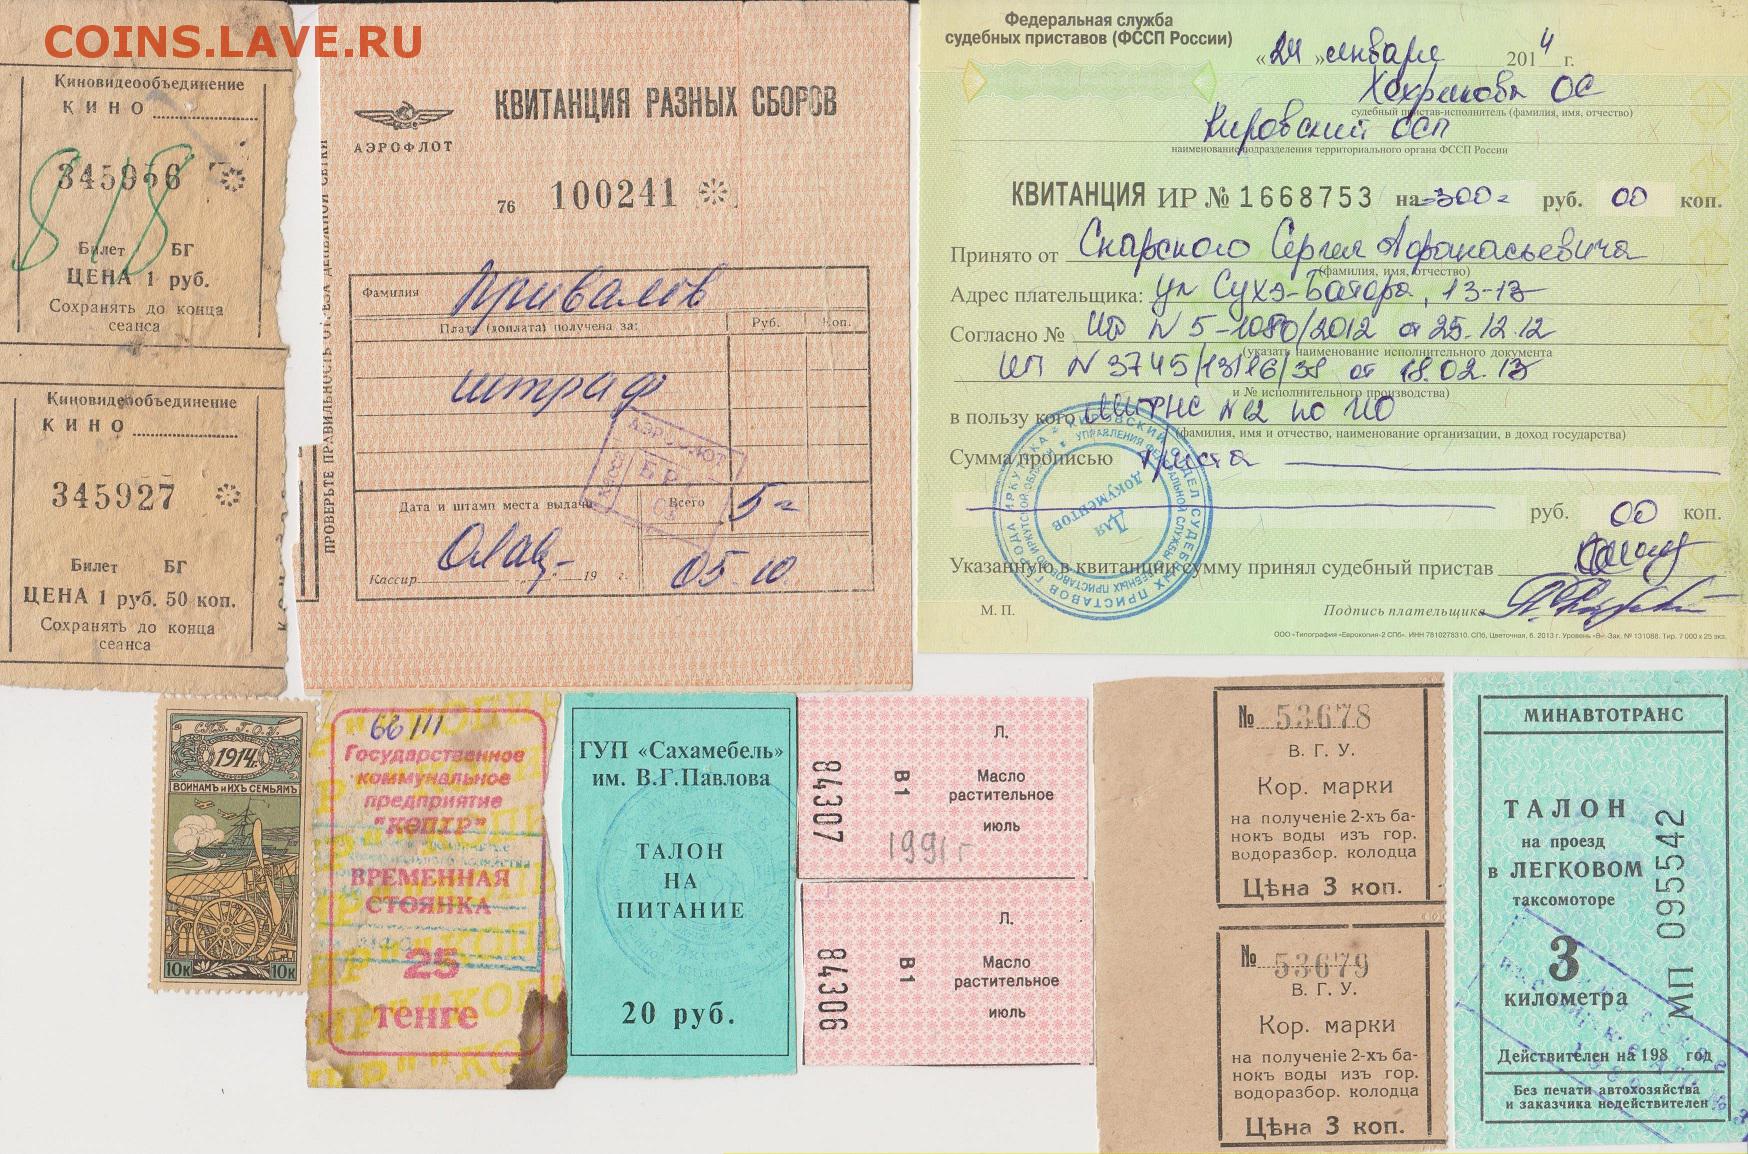 COINS.LAVE.RU
Киновидеообъединение
КИНО
345956
818
Билет БГ
ЦЕНА 1 руб.
Сохранять до конца
сеанса
Киновидеообъединение
КИНО
345927
Билет БГ
ЦЕНА 1 руб. 50 коп.
Сохранять до конца
сеанса
АЭРОФЛОТ
КВИТАНЦИЯ РАЗНЫХ СБОРОВ
76 100241
ПРОВЕРЬТЕ ПРАВИЛЬНОСТЬ
Фамилия Привалов
Плата (доплата) получена за: Руб. Коп.
штраф
АЭРОФЛОТ
Дата и штамп места выдачи
Всего 5=
Кассир 19 г.
05.10.
Федеральная служба
судебных приставов (ФССП России)
«24» января 2014 г.
судебный пристав-исполнитель (фамилия, имя, отчество)
Кировский ОСП
наименование подразделения территориального органа ФССП России
КВИТАНЦИЯ ИР № 1668753 на =300= руб. 00 коп.
Принято от Скарского Сергея Афанасьевича
(фамилия, имя, отчество)
Адрес плательщика: ул Сухэ-Батора, 13-13
Согласно № N 5-1080/2012 от 25.12.12
(указать наименование исполнительного документа
ИП N 3745/13/16/38 от 18.02.13
и № исполнительного производства)
в пользу кого МИФНС N12 по ИО
(фамилия, имя и отчество, наименование организации, в доход государства)
Сумма прописью триста
руб. 00 коп.
Для
документов
Указанную в квитанции сумму принял судебный пристав
М. П. Подпись плательщика
ООО «Типография «Еврокопия-2 СПб». ИНН 7810278310. СПб, Цветочная, 6. 2013 г. Уровень «В». Зак. № 131088. Тир. 7 000 х 25 экз.
СПБ. Г.О.У.
1914г.
ВОИНАМЪ и ИХЪ СЕМЬЯМЪ
10к 10к
66/11
Государственное
коммунальное
предприятие
"КӨПІР"
ВРЕМЕННАЯ
СТОЯНКА
25
тенге
ГУП «Сахамебель»
им. В.Г.Павлова
ТАЛОН
НА
ПИТАНИЕ
20 руб.
84307
В1
Л.
Масло
растительное
июль
1991 г
84306
В1
Л.
Масло
растительное
июль
№ 53678
В. Г. У.
Кор. марки
на полученіе 2-хъ ба-
нокъ воды изъ гор.
водоразбор. колодца
Цѣна 3 коп.
№ 53679
В. Г. У.
Кор. марки
на полученіе 2-хъ ба-
нокъ воды изъ гор.
водоразбор. колодца
Цѣна 3 коп.
МИНАВТОТРАНС
ТАЛОН
на проезд
в ЛЕГКОВОМ
таксомоторе
3
километра
МП 095542
Действителен на 198 год
Без печати автохозяйства
и заказчика недействителен